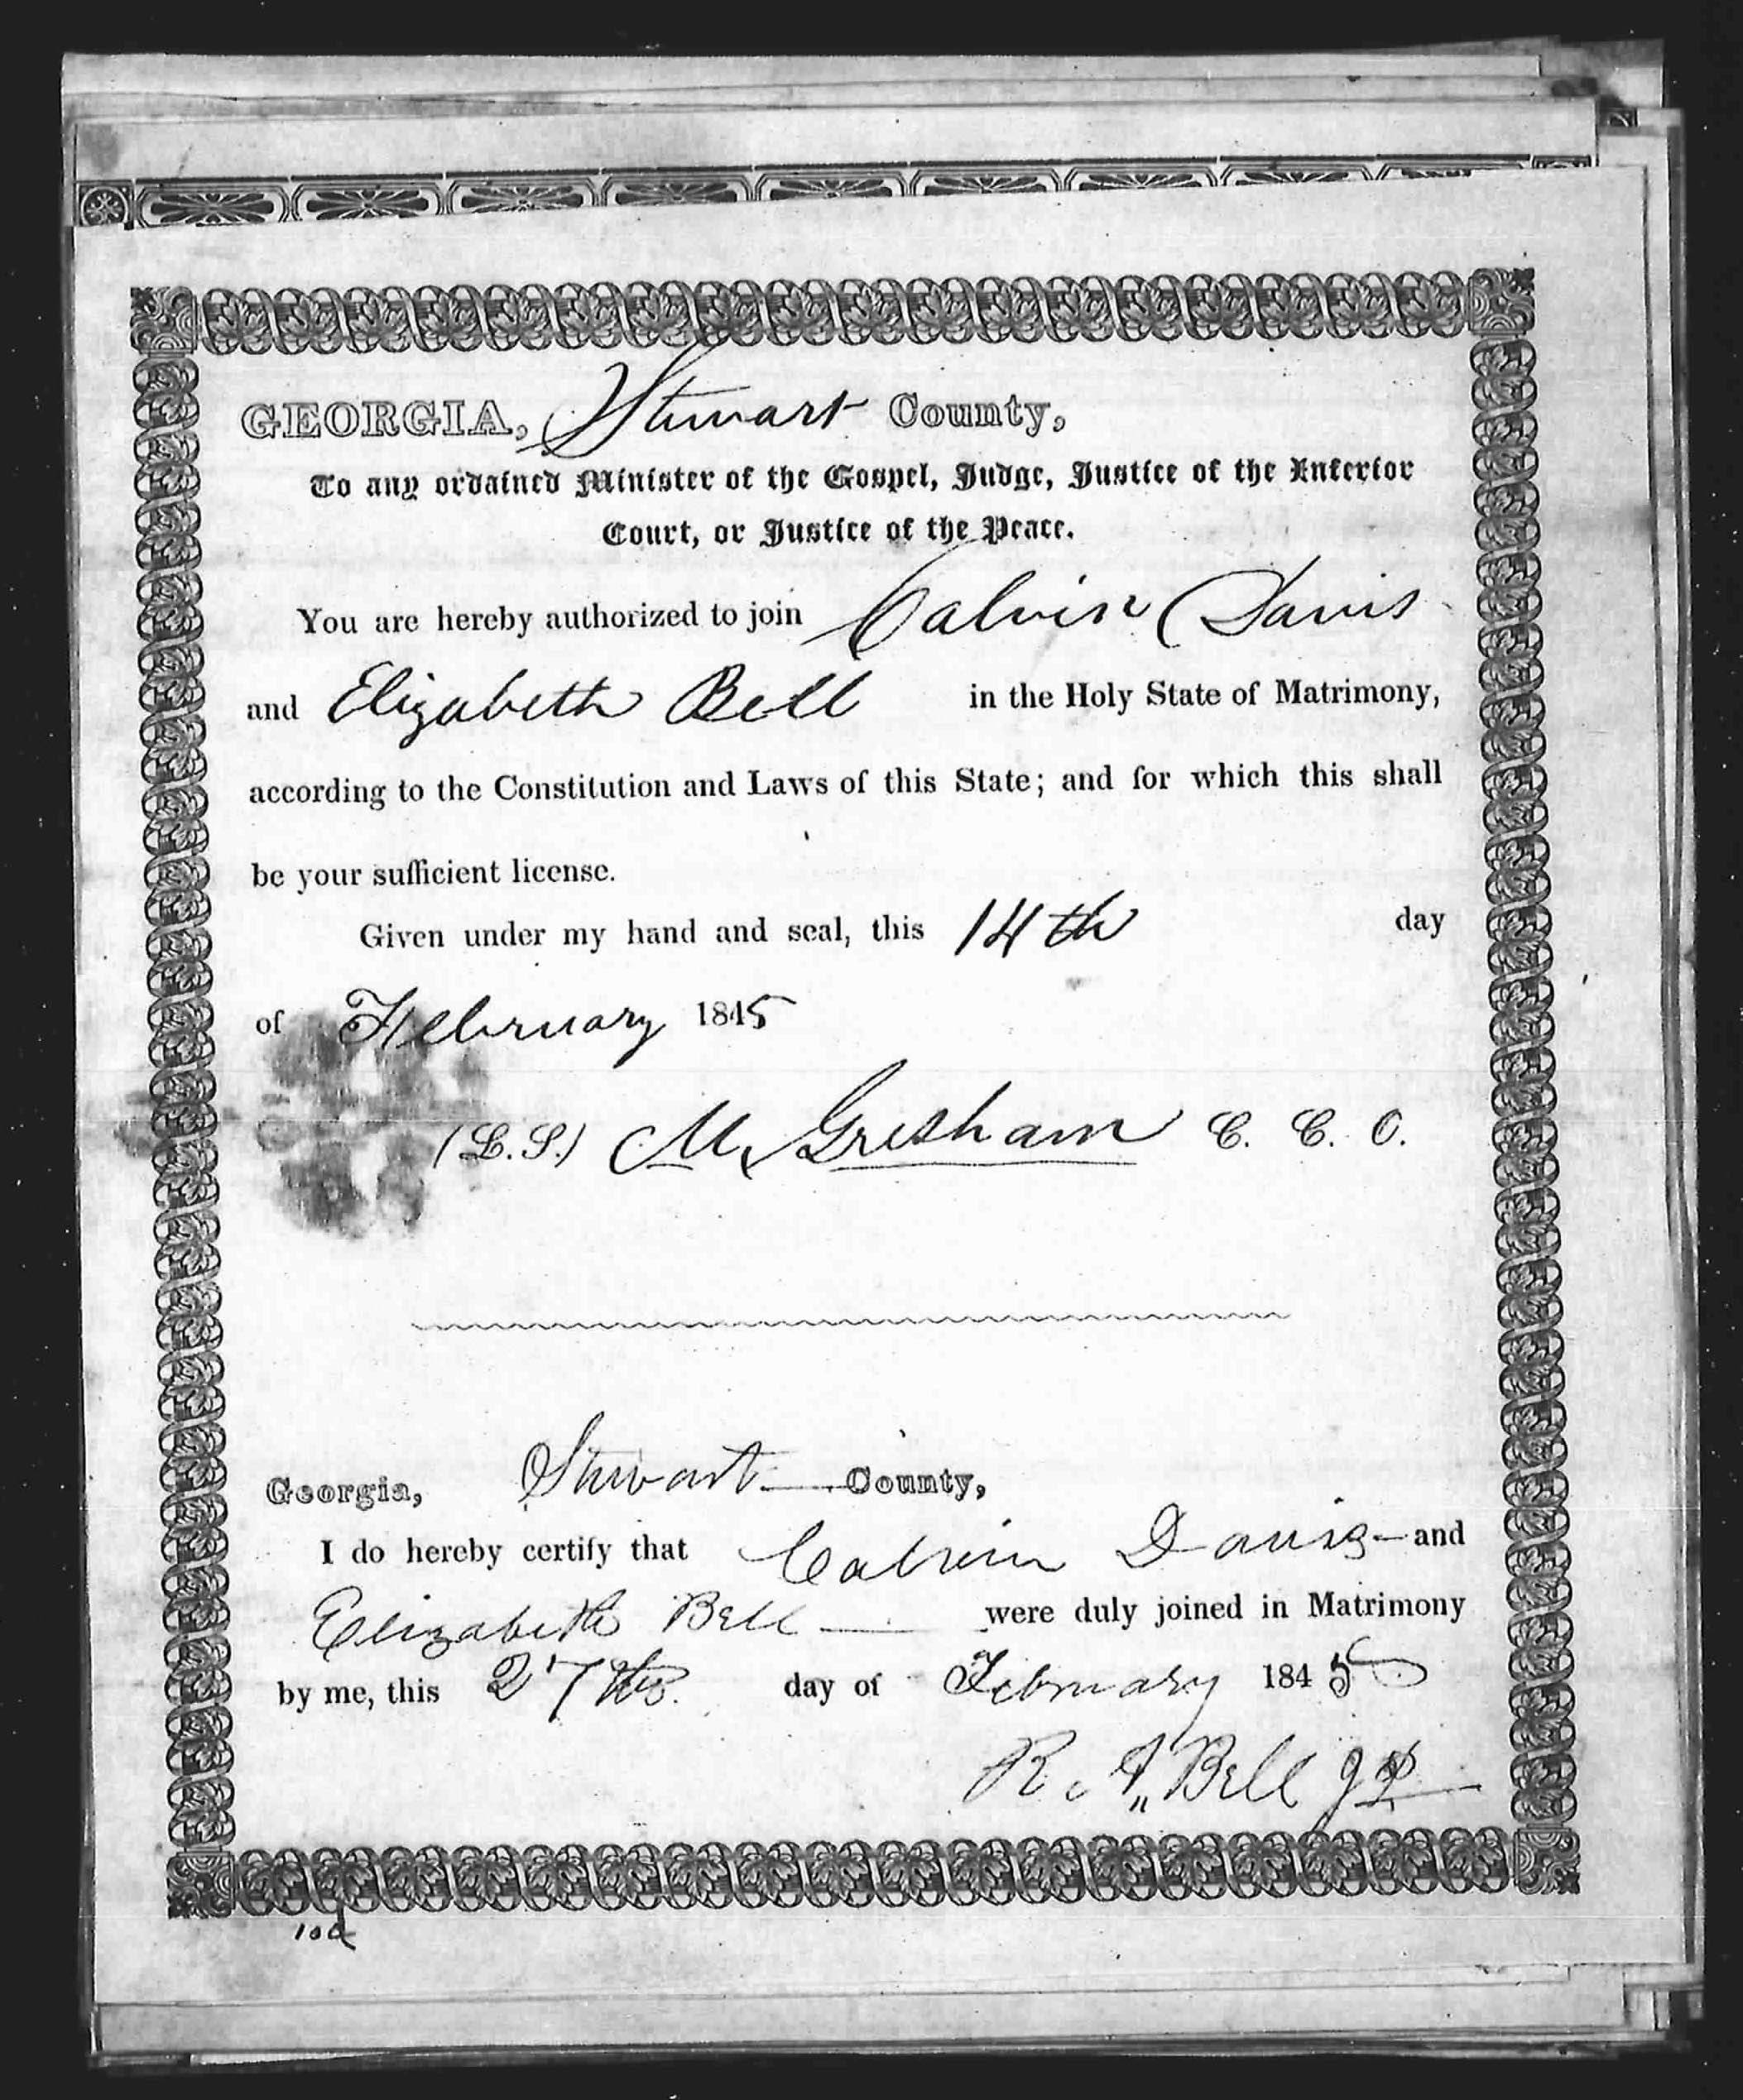 GEORGIA, Stewart County,
To any ordained Minister of the Gospel, Judge, Justice of the Inferior
Court, or Justice of the Peace.
You are hereby authorized to join Calvin Davis
and Elizabeth Bell in the Holy State of Matrimony,
according to the Constitution and Laws of this State; and for which this shall
be your sufficient license.
Given under my hand and seal, this 14th day
of February 1845
(L.S.) M. Gresham C. C. O.
Georgia, Stewart County,
I do hereby certify that Calvin Davis and
Elizabeth Bell were duly joined in Matrimony
by me, this 27th day of February 1845
R. Bell JP